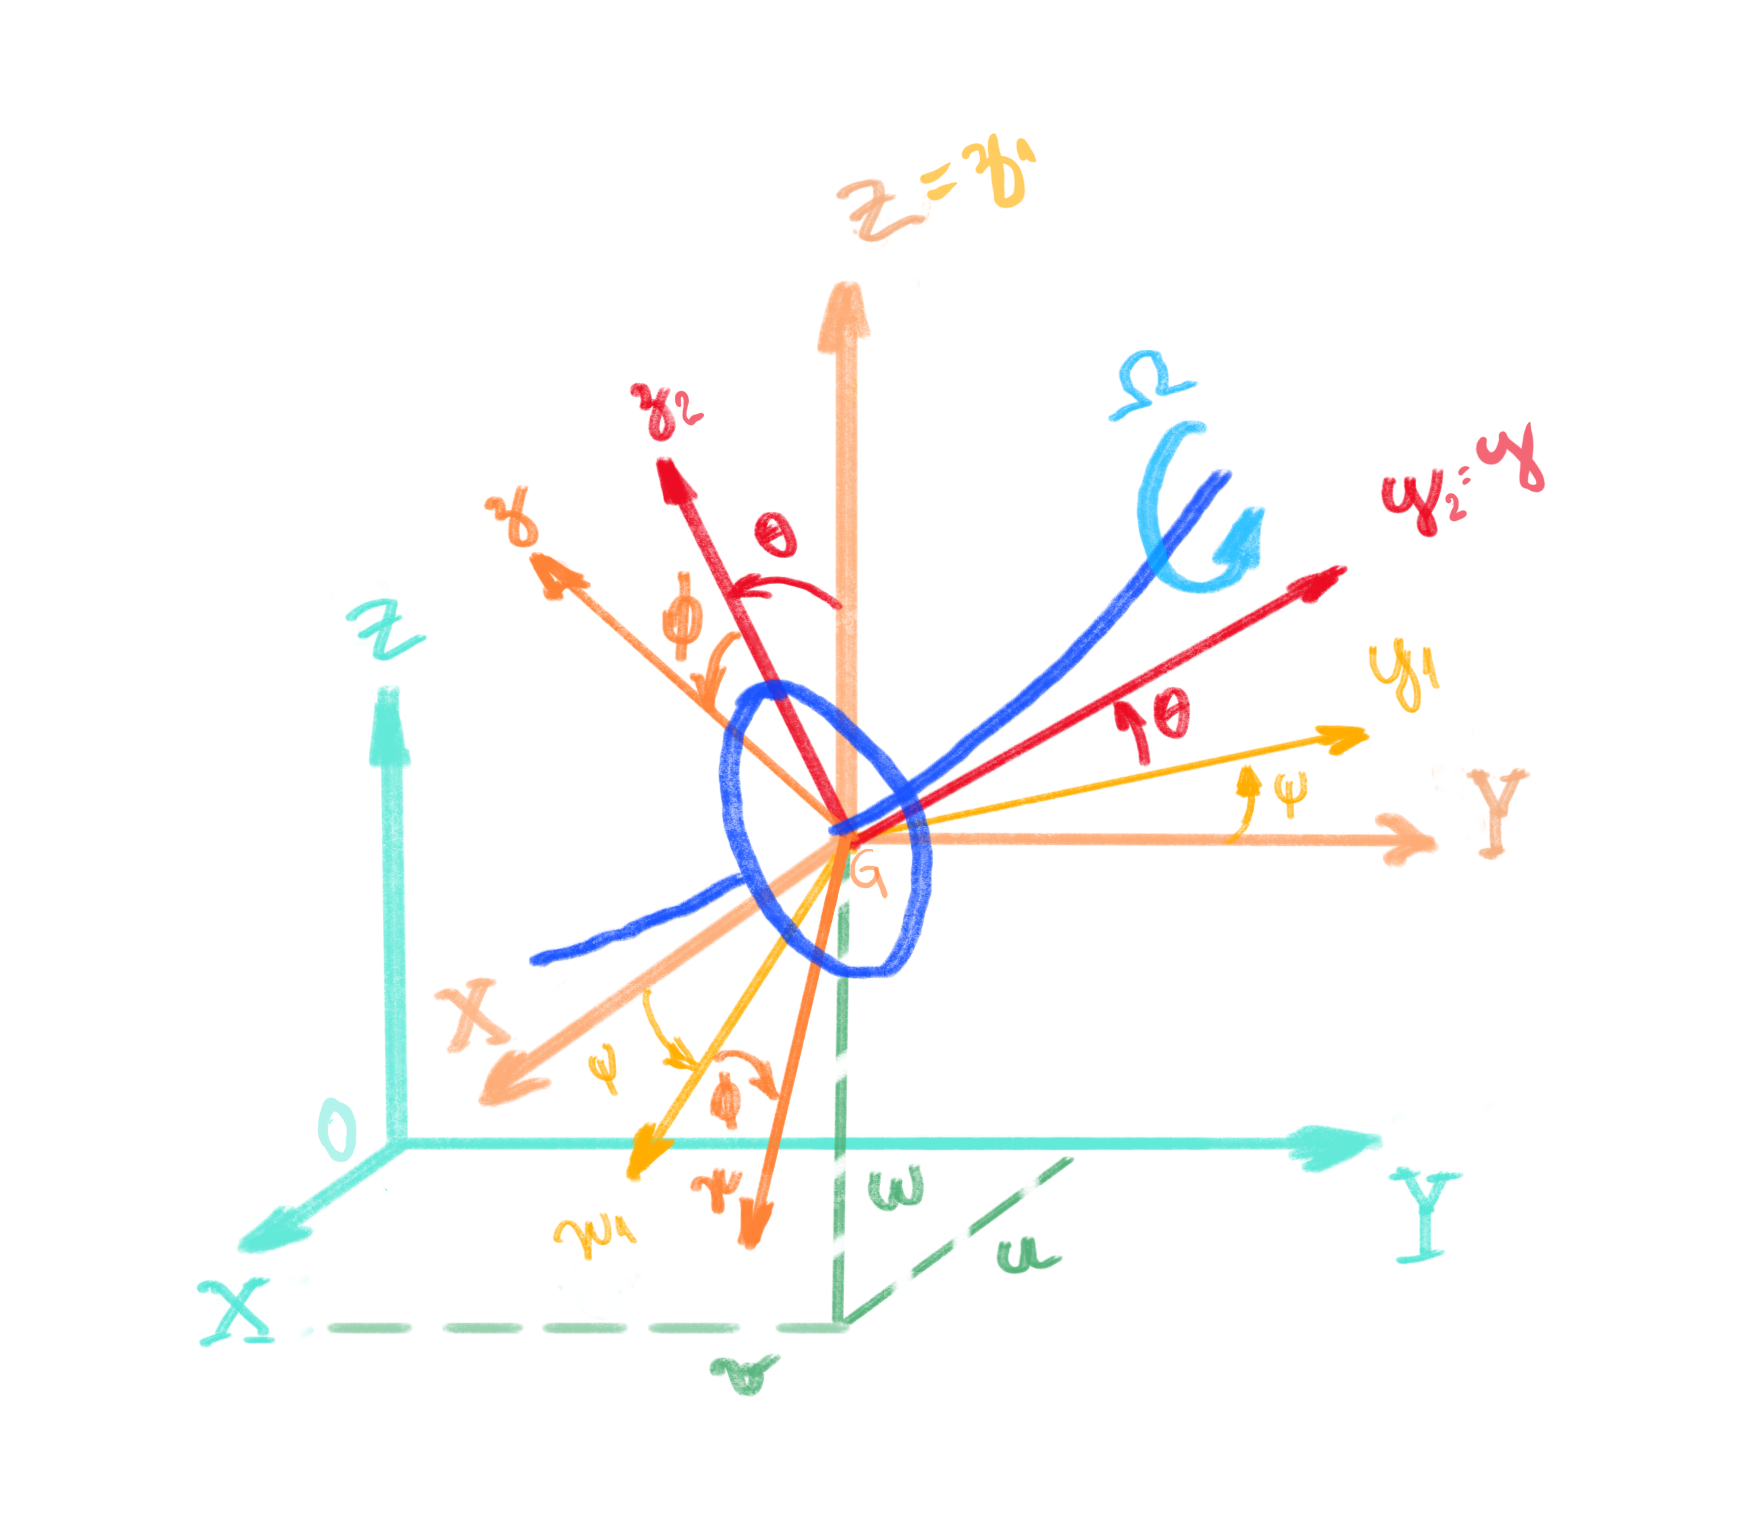 Z = z1
Ω
z2
y2 = y
z
θ
ϕ
Z
y1
θ
Y
ψ
G
X
ψ
ϕ
O
x
w
Y
x1
u
X
v